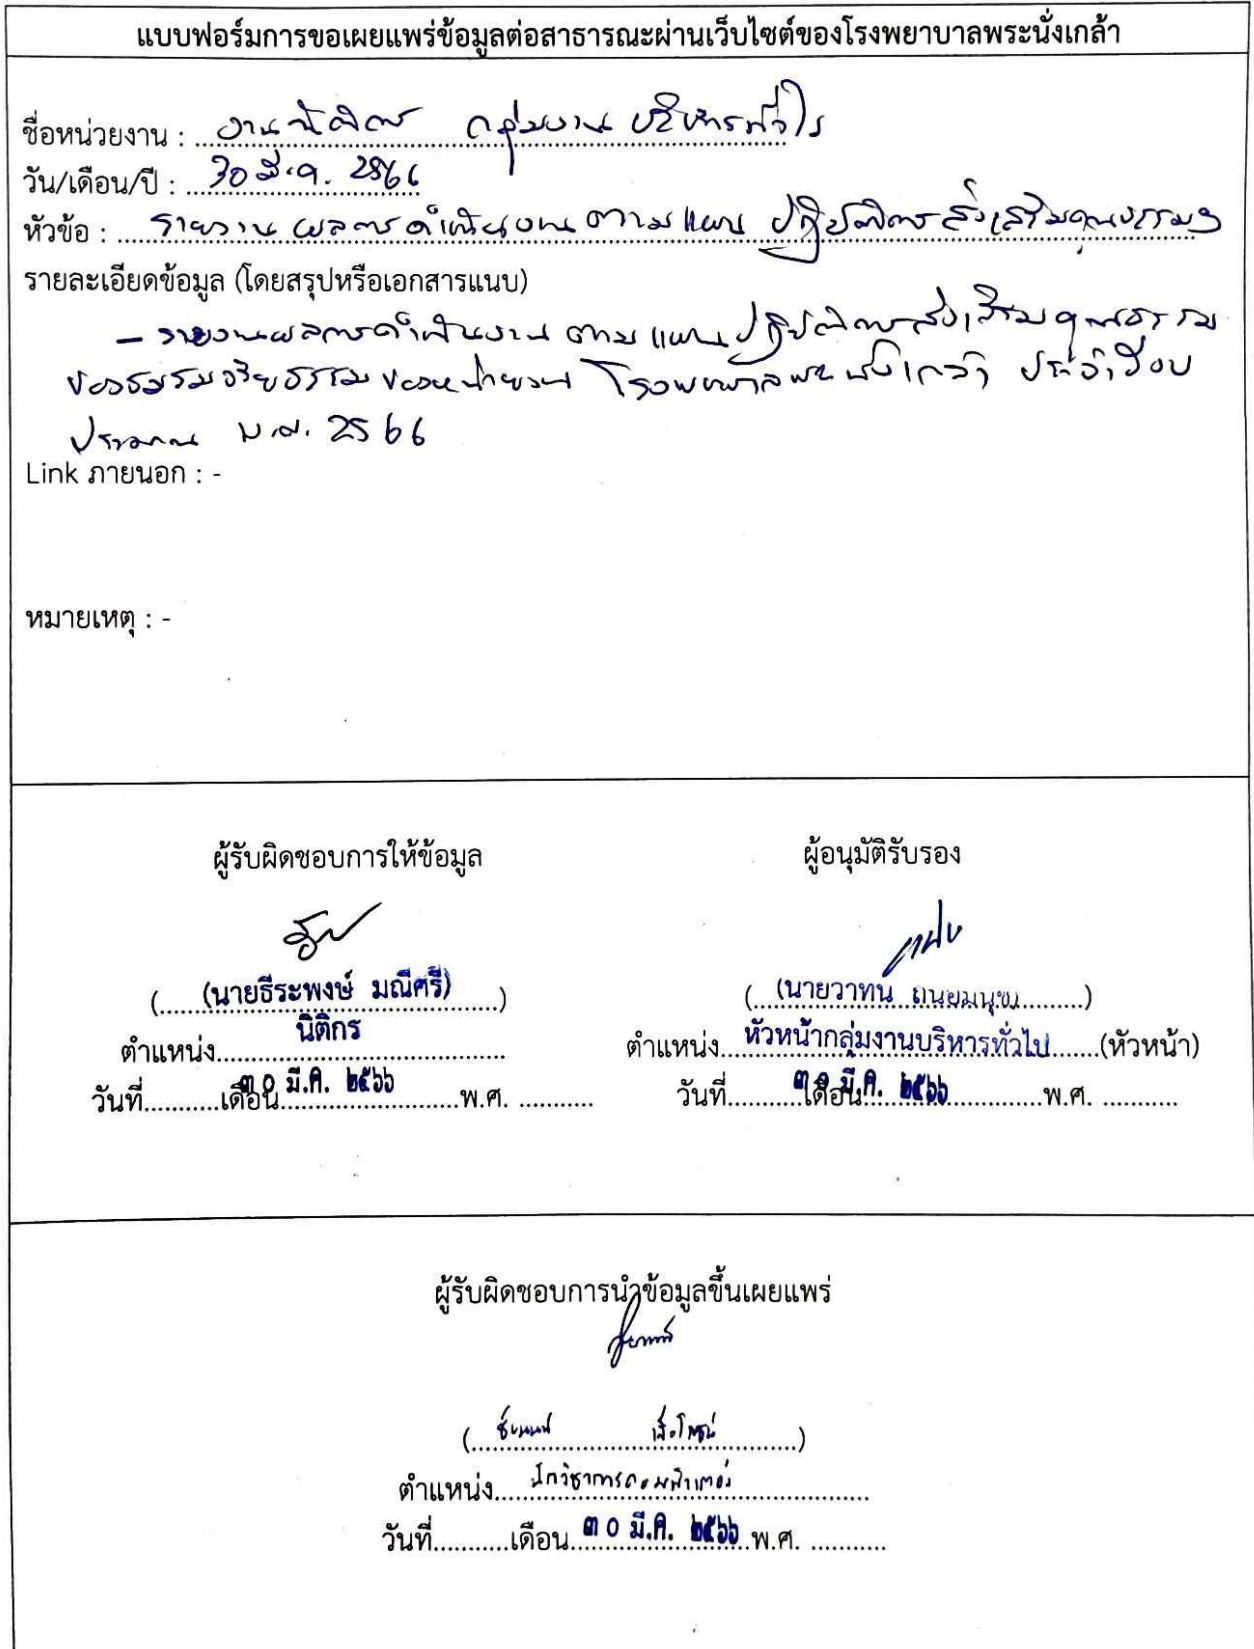 แบบฟอร์มการขอเผยแพร่ข้อมูลต่อสาธารณะผ่านเว็บไซต์ของโรงพยาบาลพระนั่งเกล้า
ชื่อหน่วยงาน : งานนิติการ กลุ่มงานบริหารทั่วไป
วัน/เดือน/ปี : 30 มี.ค. 2566
หัวข้อ : รายงานผลการดำเนินงานตามแผนปฏิบัติการส่งเสริมคุณธรรมฯ
รายละเอียดข้อมูล (โดยสรุปหรือเอกสารแนบ)
- รายงานผลการดำเนินงานตามแผนปฏิบัติการส่งเสริมคุณธรรม
ของชมรมจริยธรรมของหน่วยงาน โรงพยาบาลพระนั่งเกล้า ประจำปีงบ
ประมาณ พ.ศ. 2566
Link ภายนอก : -
หมายเหตุ : -
ผู้รับผิดชอบการให้ข้อมูล ผู้อนุมัติรับรอง
(นายธีระพงษ์ มณีศรี) (นายวาทน ถนอมนุช)
ตำแหน่ง นิติกร ตำแหน่ง หัวหน้ากลุ่มงานบริหารทั่วไป (หัวหน้า)
วันที่ เดือน ๓๐ มี.ค. ๒๕๖๖ พ.ศ. วันที่ เดือน ๓๐ มี.ค. ๒๕๖๖ พ.ศ.
ผู้รับผิดชอบการนำข้อมูลขึ้นเผยแพร่
ตำแหน่ง นักวิชาการคอมพิวเตอร์
วันที่ เดือน ๓๐ มี.ค. ๒๕๖๖ พ.ศ.